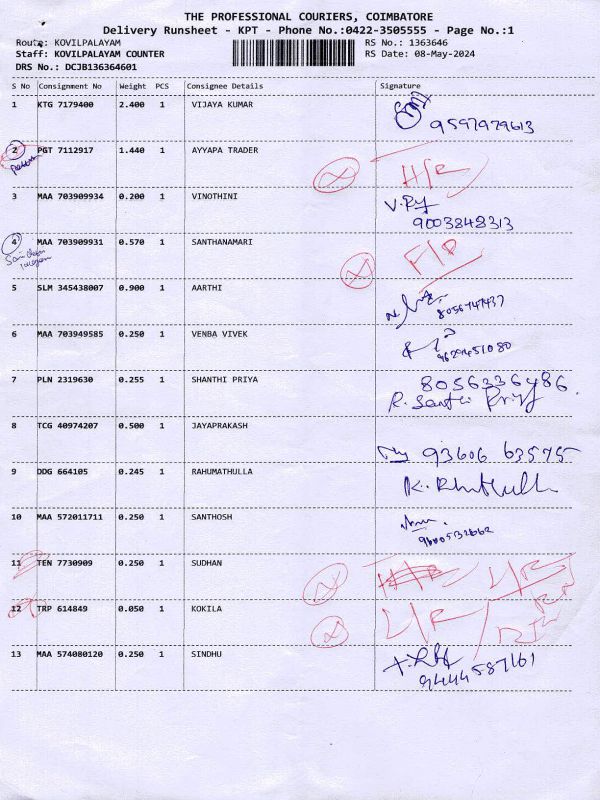 THE PROFESSIONAL COURIERS, COIMBATORE
Delivery Runsheet - KPT - Phone No.:0422-3505555 - Page No.:1
Route: KOVILPALAYAM RS No.: 1363646
Staff: KOVILPALAYAM COUNTER RS Date: 08-May-2024
DRS No.: DCJB136364601
S No Consignment No Weight PCS Consignee Details Signature
1 KTG 7179400 2.400 1 VIJAYA KUMAR
9597979613
2 PGT 7112917 1.440 1 AYYAPA TRADER
3 MAA 703909934 0.200 1 VINOTHINI
9003848313
4 MAA 703909931 0.570 1 SANTHANAMARI
5 SLM 345438007 0.900 1 AARTHI
8056747437
6 MAA 703949585 0.250 1 VENBA VIVEK
9629451080
7 PLN 2319630 0.255 1 SHANTHI PRIYA 8056336486
R. Santhi Priya
8 TCG 40974207 0.500 1 JAYAPRAKASH
93606 63575
9 DDG 664105 0.245 1 RAHUMATHULLA
10 MAA 572011711 0.250 1 SANTHOSH
11 TEN 7730909 0.250 1 SUDHAN
12 TRP 614849 0.050 1 KOKILA
13 MAA 574080120 0.250 1 SINDHU
9444587161